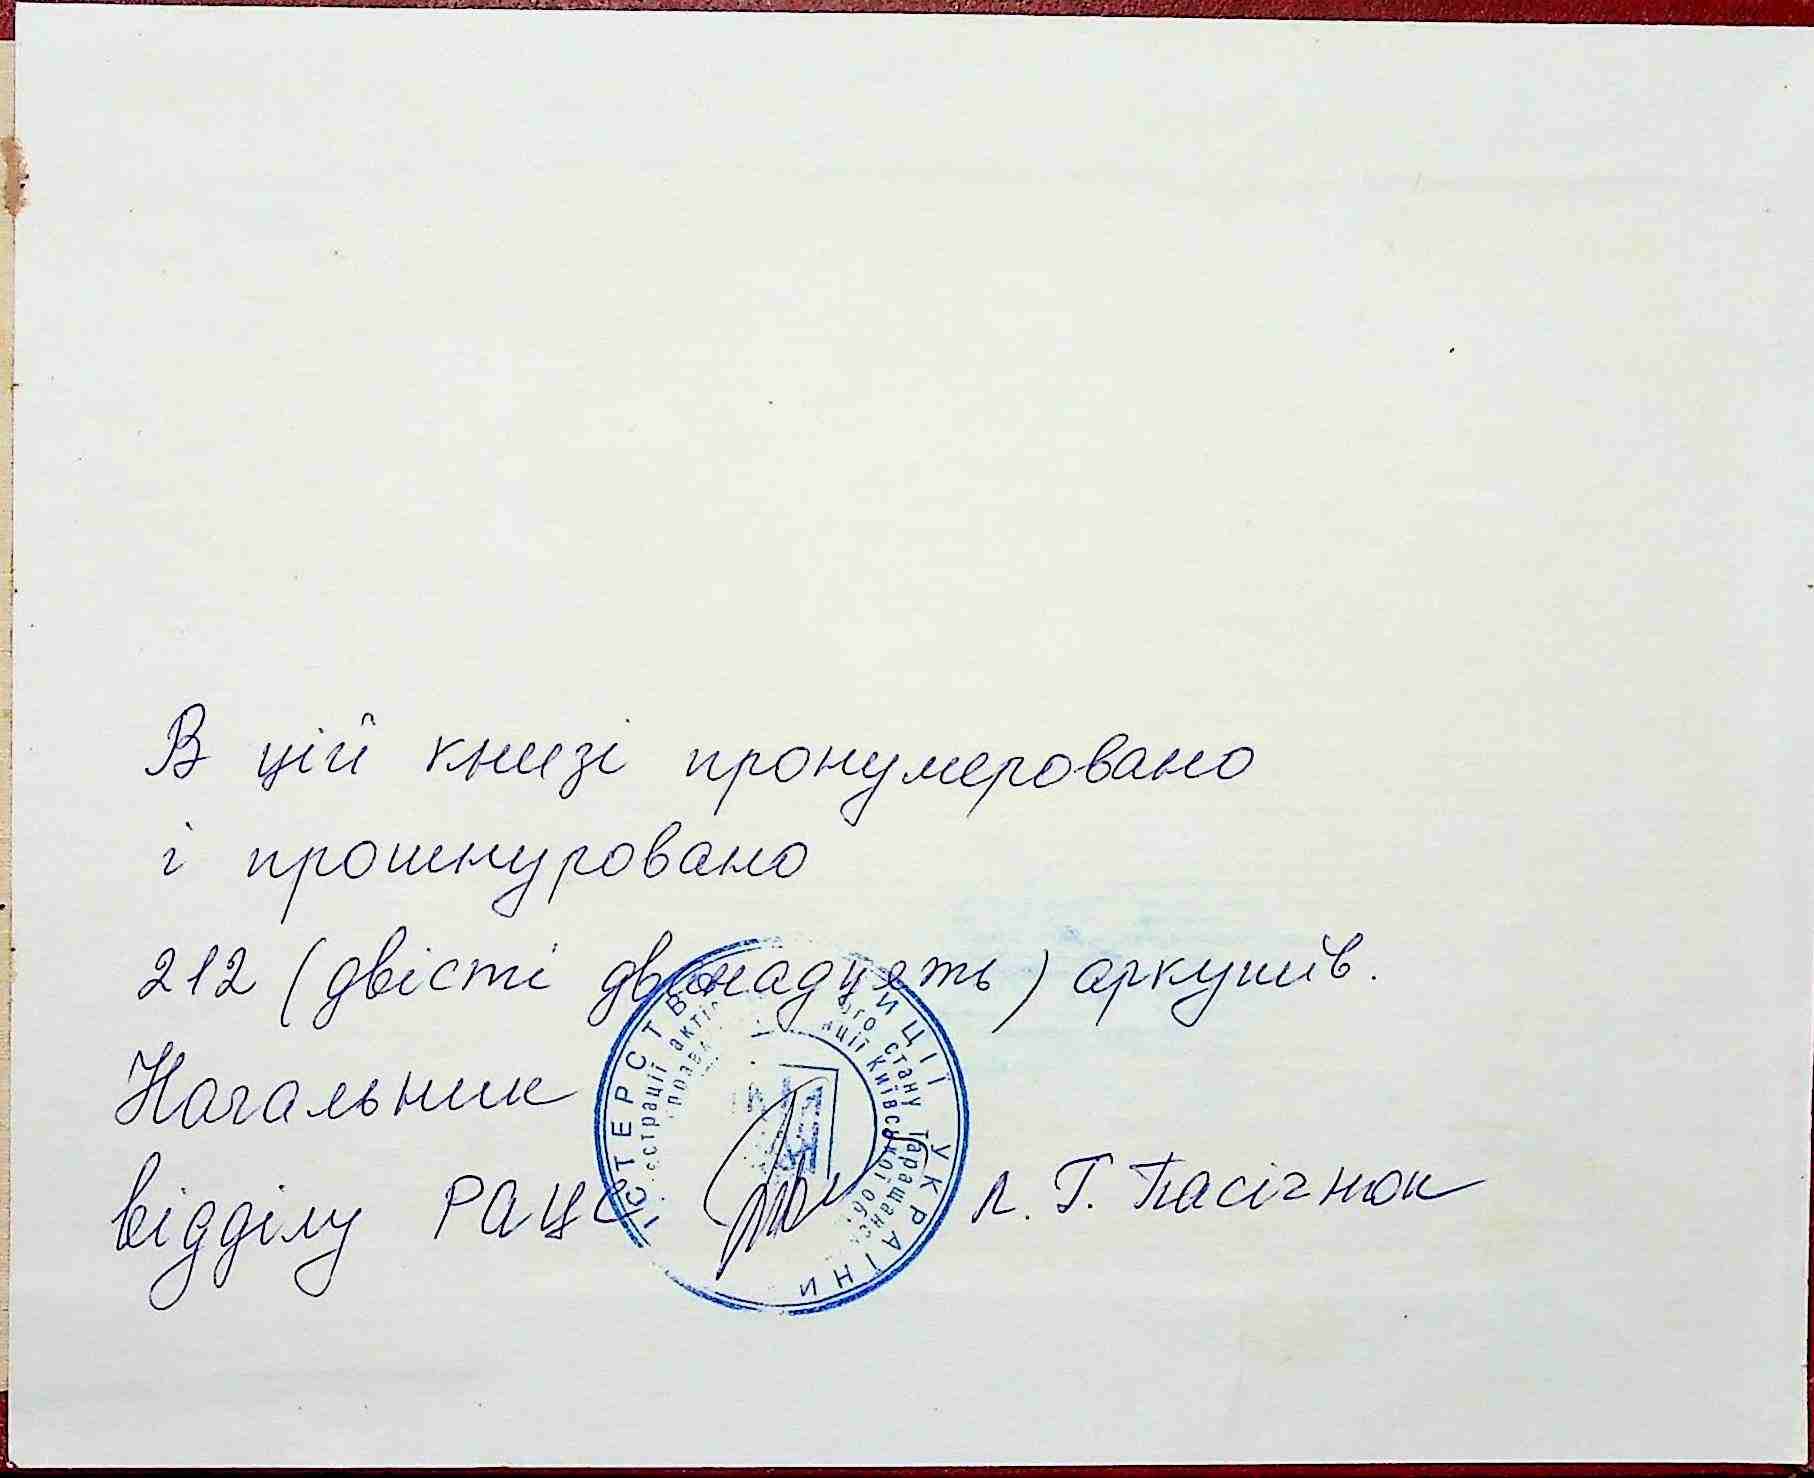 В цій книзі пронумеровано
і прошнуровано
212 (двісті дванадцять) аркушів.
Начальник
відділу РАЦС Л. Г. Пасічнюк
ІСТЕРСТВ ИЦІЇ УКРАЇНИ
страції актів ого стану Таращанс
прав ції Київської об